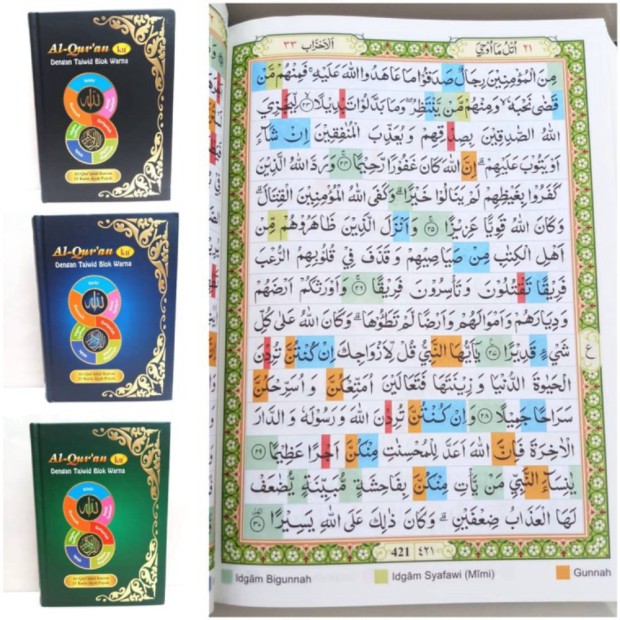 Al-Qur'an Ku
Dengan Tajwid Blok Warna
Al-Qur'an Ku
Dengan Tajwid Blok Warna
Al-Qur'an Ku
Dengan Tajwid Blok Warna
٢١ اُتْلُ مَآ اُوْحِيَ
اَلْاَحْزَاب ٣٣
مِنَ الْمُؤْمِنِيْنَ رِجَالٌ صَدَقُوْا مَا عَاهَدُوا اللّٰهَ عَلَيْهِ ۚ فَمِنْهُمْ مَّنْ
قَضٰى نَحْبَهٗ ۙ وَمِنْهُمْ مَّنْ يَّنْتَظِرُ ۖ وَمَا بَدَّلُوْا تَبْدِيْلًا ۙ ﴿٢٣﴾ لِّيَجْزِيَ
اللّٰهُ الصّٰدِقِيْنَ بِصِدْقِهِمْ وَيُعَذِّبَ الْمُنٰفِقِيْنَ اِنْ شَاۤءَ
اَوْ يَتُوْبَ عَلَيْهِمْ ۗ اِنَّ اللّٰهَ كَانَ غَفُوْرًا رَّحِيْمًا ۚ ﴿٢٤﴾ وَرَدَّ اللّٰهُ الَّذِيْنَ
كَفَرُوْا بِغَيْظِهِمْ لَمْ يَنَالُوْا خَيْرًا ۗ وَكَفَى اللّٰهُ الْمُؤْمِنِيْنَ الْقِتَالَ ۗ
وَكَانَ اللّٰهُ قَوِيًّا عَزِيْزًا ۚ ﴿٢٥﴾ وَاَنْزَلَ الَّذِيْنَ ظَاهَرُوْهُمْ مِّنْ
اَهْلِ الْكِتٰبِ مِنْ صَيَاصِيْهِمْ وَقَذَفَ فِيْ قُلُوْبِهِمُ الرُّعْبَ
فَرِيْقًا تَقْتُلُوْنَ وَتَأْسِرُوْنَ فَرِيْقًا ۚ ﴿٢٦﴾ وَاَوْرَثَكُمْ اَرْضَهُمْ
وَدِيَارَهُمْ وَاَمْوَالَهُمْ وَاَرْضًا لَّمْ تَطَـُٔوْهَا ۗ وَكَانَ اللّٰهُ عَلٰى كُلِّ
شَيْءٍ قَدِيْرًا ࣖ ﴿٢٧﴾ يٰٓاَيُّهَا النَّبِيُّ قُلْ لِّاَزْوَاجِكَ اِنْ كُنْتُنَّ تُرِدْنَ
الْحَيٰوةَ الدُّنْيَا وَزِيْنَتَهَا فَتَعَالَيْنَ اُمَتِّعْكُنَّ وَاُسَرِّحْكُنَّ
سَرَاحًا جَمِيْلًا ﴿٢٨﴾ وَاِنْ كُنْتُنَّ تُرِدْنَ اللّٰهَ وَرَسُوْلَهٗ وَالدَّارَ
الْاٰخِرَةَ فَاِنَّ اللّٰهَ اَعَدَّ لِلْمُحْسِنٰتِ مِنْكُنَّ اَجْرًا عَظِيْمًا ﴿٢٩﴾
يٰنِسَاۤءَ النَّبِيِّ مَنْ يَّأْتِ مِنْكُنَّ بِفَاحِشَةٍ مُّبَيِّنَةٍ يُّضٰعَفْ
لَهَا الْعَذَابُ ضِعْفَيْنِ ۗ وَكَانَ ذٰلِكَ عَلَى اللّٰهِ يَسِيْرًا ﴿٣٠﴾
ع
421 ٤٢١
Idgām Bigunnah
Idgām Syafawi (Mīmi)
Gunnah